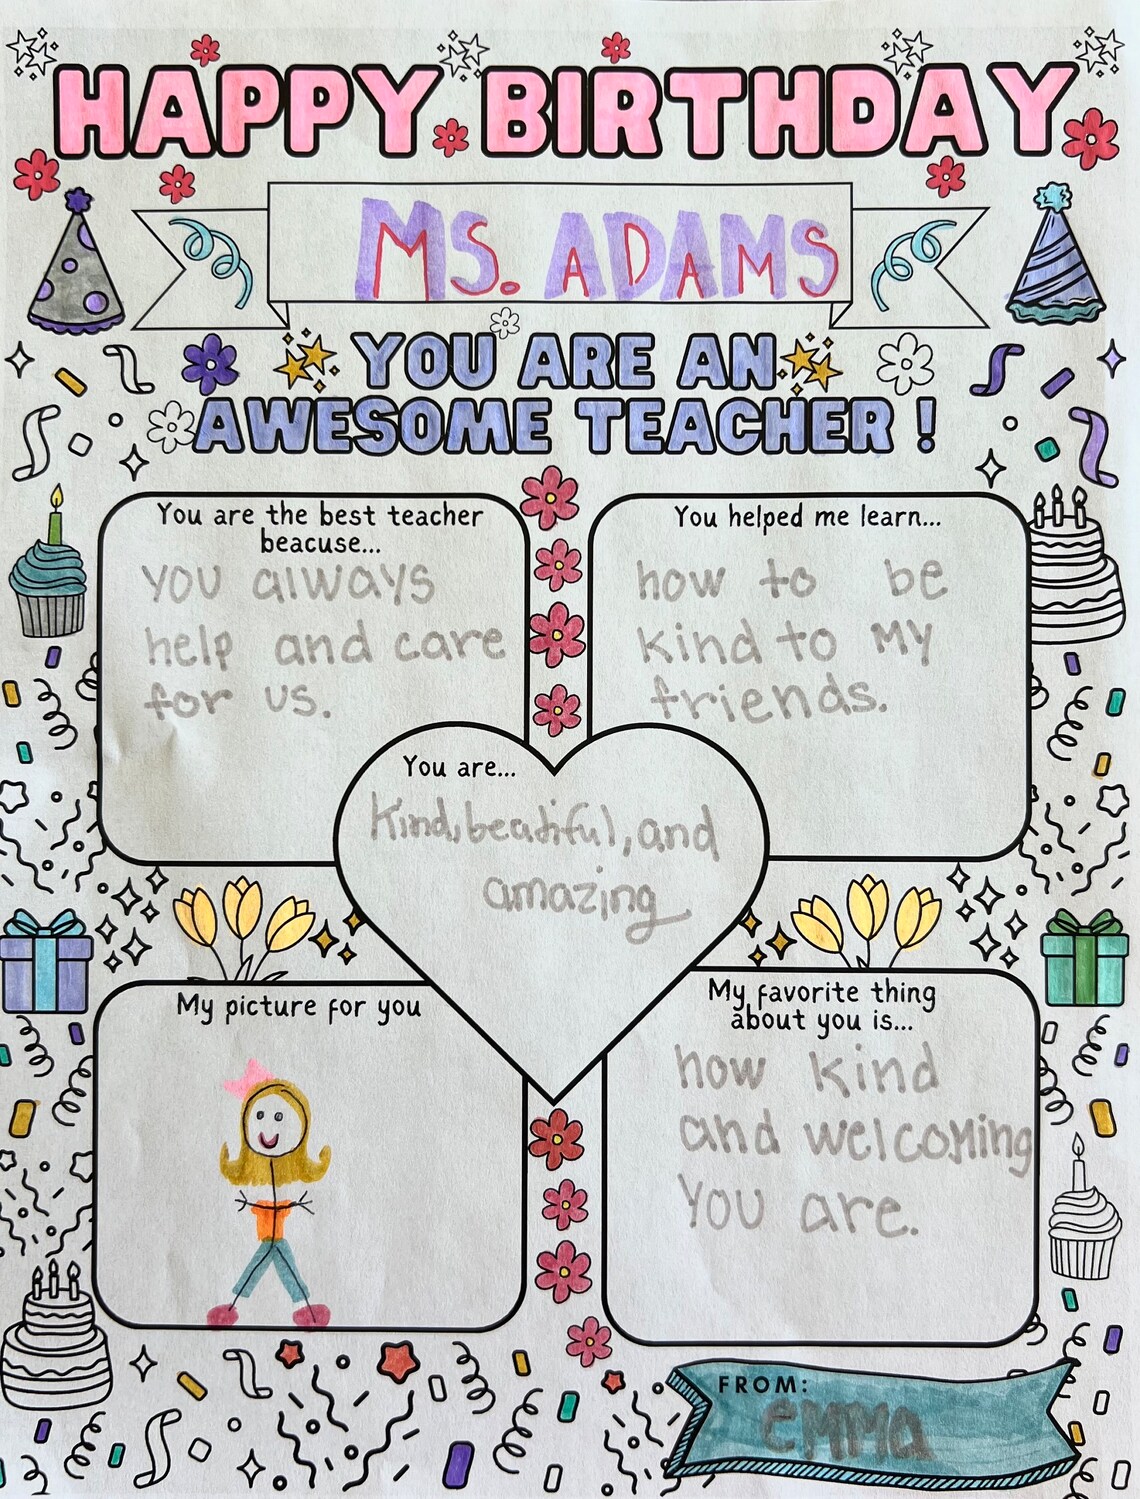 HAPPY BIRTHDAY
MS. ADAMS
YOU ARE AN
AWESOME TEACHER !
You are the best teacher
beacuse...
you always
help and care
for us.
You helped me learn...
how to be
kind to my
friends.
You are...
kind, beautiful, and
amazing
My picture for you
My favorite thing
about you is...
how kind
and welcoming
you are.
FROM:
emma